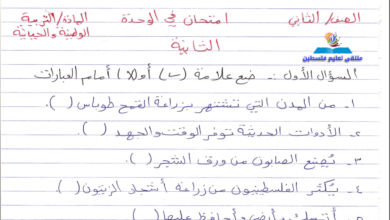 الصف/ الثاني امتحان في الوحدة المادة/ التربية
الثانية الوطنية والحياتية
ملتقى تعليم فلسطين
السؤال الأول :- ضع علامة (✓) أو (x) أمام العبارات
١- من المدن التي تشتهر بزراعة القمح طوباس ( ).
٢- الأدوات الحديثة توفر الوقت والجهد ( ).
٣- يُصنع الصابون من ورق الشجر ( ).
٤- يُكثر الفلسطينيون من زراعة أشجار الزيتون ( ).
وأحافظ عليها ( ).